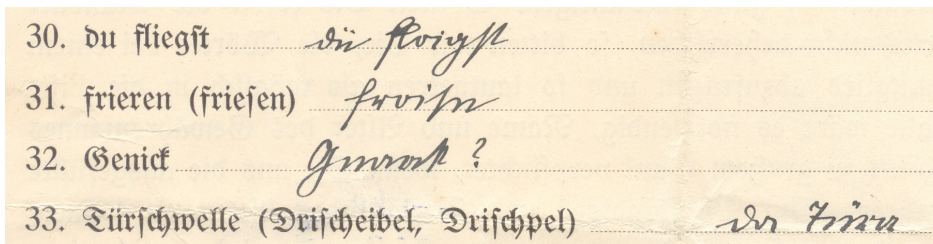 30. du fliegſt dü floigst
31. frieren (frieſen) froisn
32. Genick Gnaak ?
33. Türſchwelle (Driſcheibel, Driſchpel) da Türa